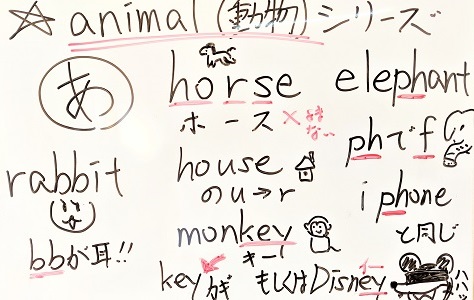 ☆ animal (動物) シリーズ
あ
horse
ホース ×よまない
house
のu→r
monkey
キー!
key カギ もしくはDisney
イー
ハハ
rabbit
bbが耳!!
elephant
phでf
iphone
と同じ